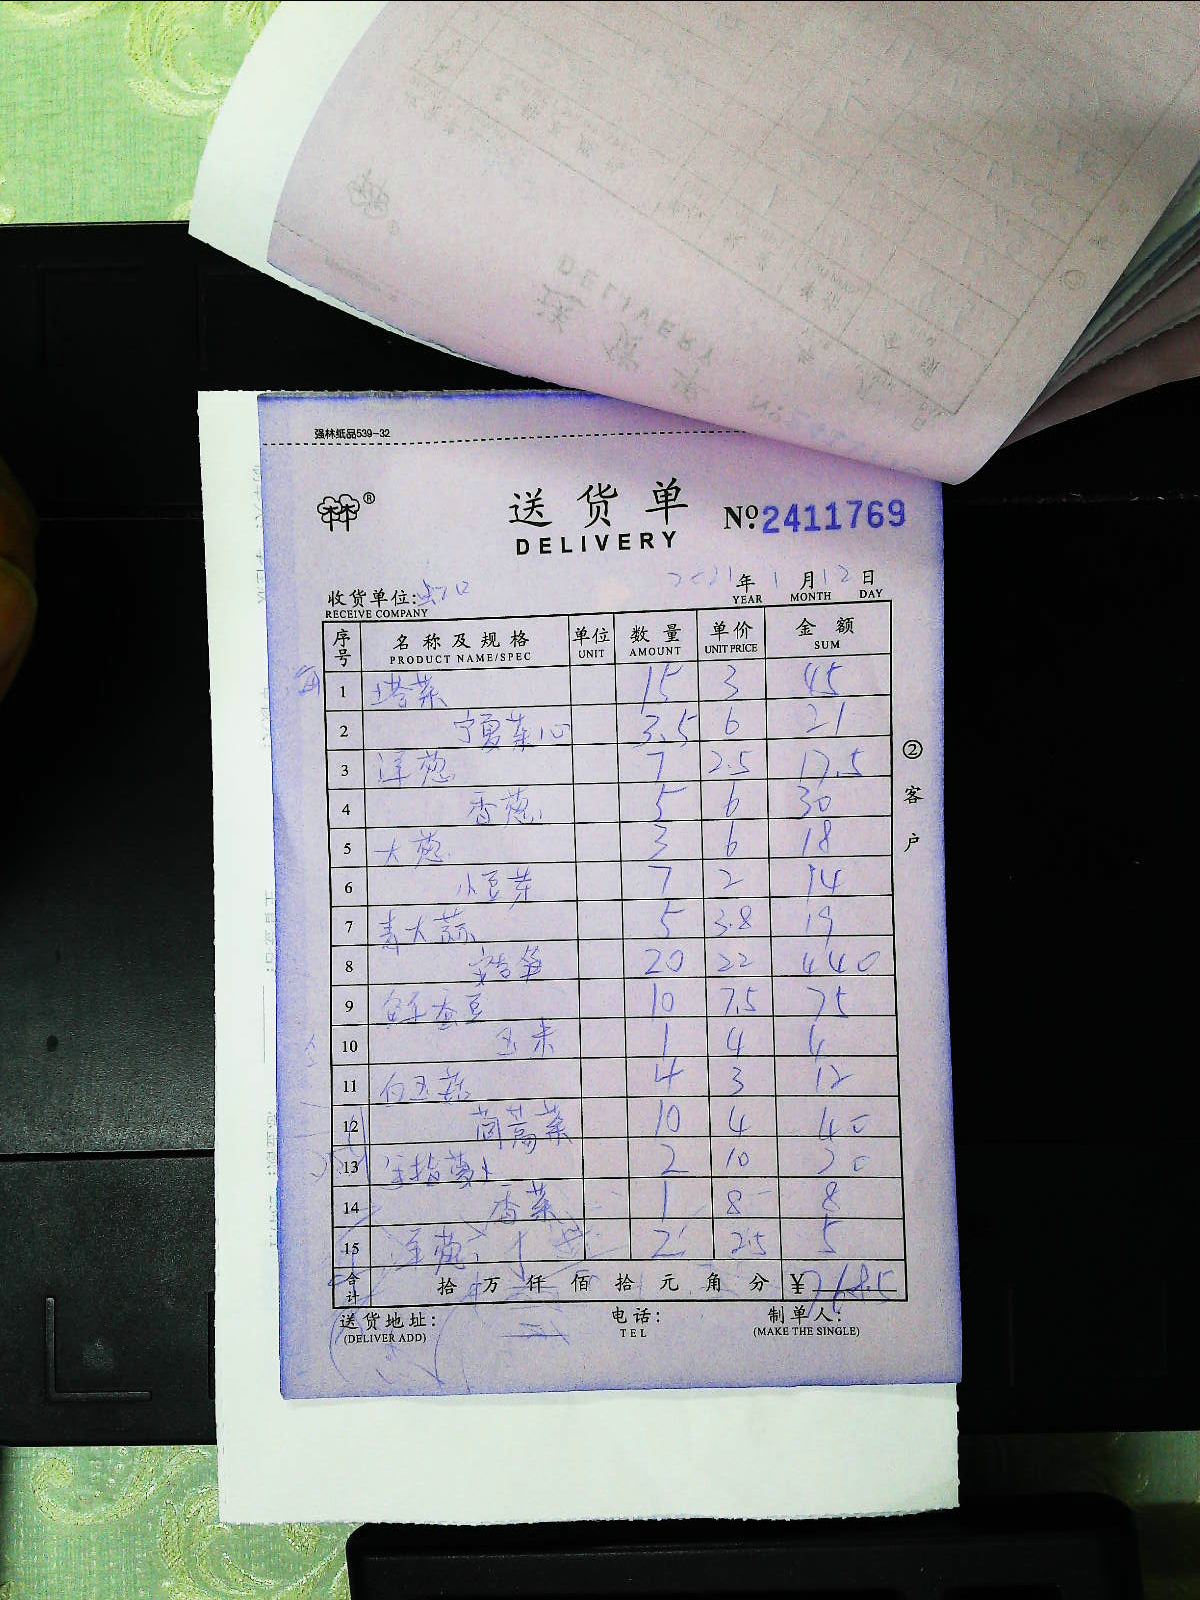 强林纸品539-32
送货单
DELIVERY
® №2411769
收货单位:虹口 2021年1月12日
RECEIVE COMPANY YEAR MONTH DAY
序号 名称及规格 单位 数量 单价 金额
PRODUCT NAME/SPEC UNIT AMOUNT UNIT PRICE SUM
1 塔菜 15 3 45
2 宁夏菜心 3.5 6 21
3 洋葱 7 2.5 17.5
4 香葱 5 6 30
5 大葱 3 6 18
6 小豆芽 7 2 14
7 青大蒜 5 3.8 19
8 安吉笋 20 22 440
9 鲜蚕豆 10 7.5 75
10 玉米 1 4 4
11 白玉菇 4 3 12
12 茼蒿菜 10 4 40
13 手指萝卜 2 10 20
14 香菜 1 8 8
15 洋葱 2 2.5 5
合计 拾万仟佰拾元角分 ¥768.5
②客户
送货地址: 电话: 制单人:
(DELIVER ADD) TEL (MAKE THE SINGLE)